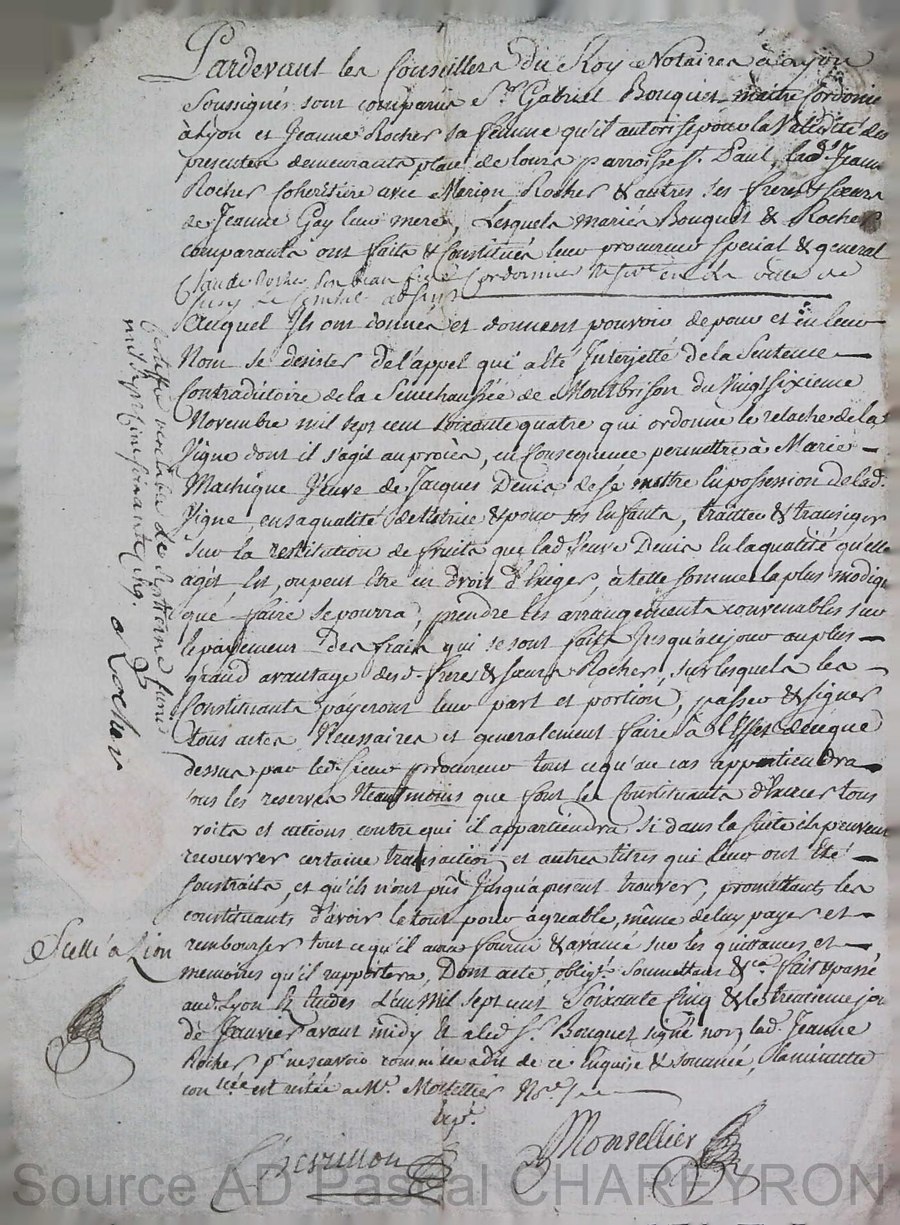 Pardevant les Conseillers du Roy Notaires a Lyon
soussignés sont comparus Sr. Gabriel Bouquet maitre Cordonie
à Lyon et Jeanne Rocher sa femme qu'il autorise pour la Validité des
presentes demeurants place de lours parroisse St. Paul, lade. Jeane
Rocher Coheritiere avec Marion Rocher & autres ses freres & sœurs
de Jeanne Gay leur mere, Lesquels mariés Bouquet & Rocher
comparants ont faits & Constitués leur procureur special & general
Claude Rocher son beau frere Cordonnier en la ville de
absent
Auquel Ils ont donnés et donnent pouvoir de pour et en leur
Nom se desister de l'appel qui a été Interjetté de la Sentence
Contradictoire de la Senechaussée de Montbrison du Vingt sixieme
Novembre mil sept cent soixante quatre qui ordonne le relache de la
Vigne dont il s'agit au procès, en Consequence permettre à Marie
Machique Veuve de Jacques Denis de se mettre en possession de lad.
Vigne en sa qualité de tutrice & pour ses Enfants, traitter & transiger
sur la restitution de fruits que lad. Veuve Denis En la qualité qu'elle
agit, Est, ou peut être en droit d'Exiger, à telle somme la plus modique
que faire se pourra, prendre les arrangements convenables sur
le payement des frais qui se sont faits Jusqu'a ce jour au plus
grand avantage desd. freres & sœurs Rocher, sur lesquels les
Constituants payeront leur part et portion, passer & signer
tous actes Necessaires et generalement faire à l'Effet de ce que
dessus par led. Sieur procureur tout ce qu'au cas appartiendra
sous les reserves Neantmoins que font les Constituants d'Exercer tous
roits et actions contre qui il appartiendra si dans la suite ils peuvent
recouvrer certaine transaction et autres titres qui leur ont Eté
soustraits, et qu'ils n'ont pus Jusqu'a present trouver, promettants les
constituants d'avoir le tout pour agreable, même de luy payer et
rembourser tout ce qu'il aura fourni & avancé sur les quittances et
memoires qu'il rapportera, Dont acte, obligt. soummettant &ca. fait & passé
aud. Lyon Ez Etudes L'an Mil sept cent Soixante Cinq & le treizieme jou
de Janvier avant midy Et a led. Sr. Bouquet signé non lad. Jeanne
Rocher pr. ne scavoir comme elle a dit de ce Enquise & sommée, la minutte
controllée est restée a Me. Montellier Nore.
Expé.
Chevillon
Montellier
Scellé a Lion
mil sept cent soixante cinq.
Rocher
Source AD Pascal CHAREYRON